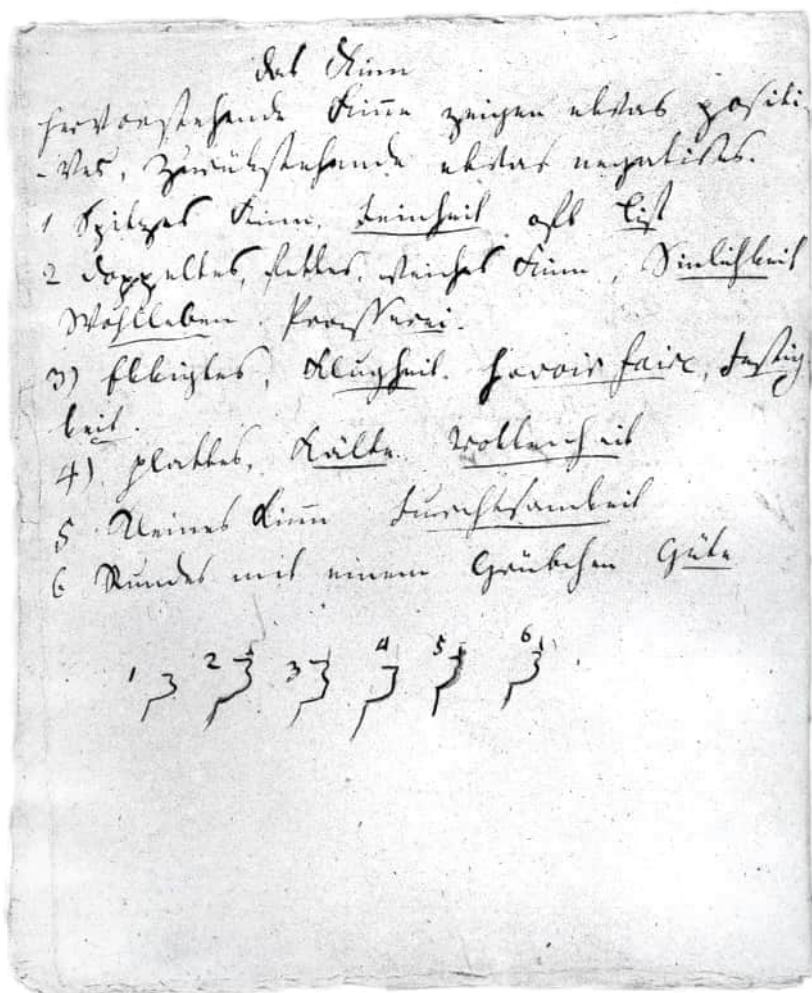 das Kinn
hervorstehende Kinne zeigen etwas positi
-ves, zurükstehende etwas negatives.
1 Spitzes Kinn, Feinheit oft List
2 doppeltes, fettes, weiches Kinn, Sinlichkeit
Wohlleben. Prasserei.
3) Ekkigtes, Klugheit. savoir faire, Festig
keit.
4) plattes, Kälte
5 Kleines Kinn Furchtsamkeit
6 Rundes mit einem Grübchen Güte
1 2 3 4 5 6